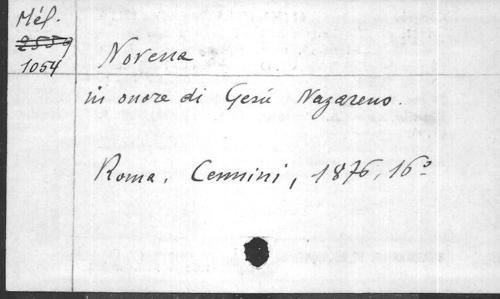 Mél.
2559
1054
Novena
in onore di Gesù Nazareno.
Roma. Cennini, 1876, 16º